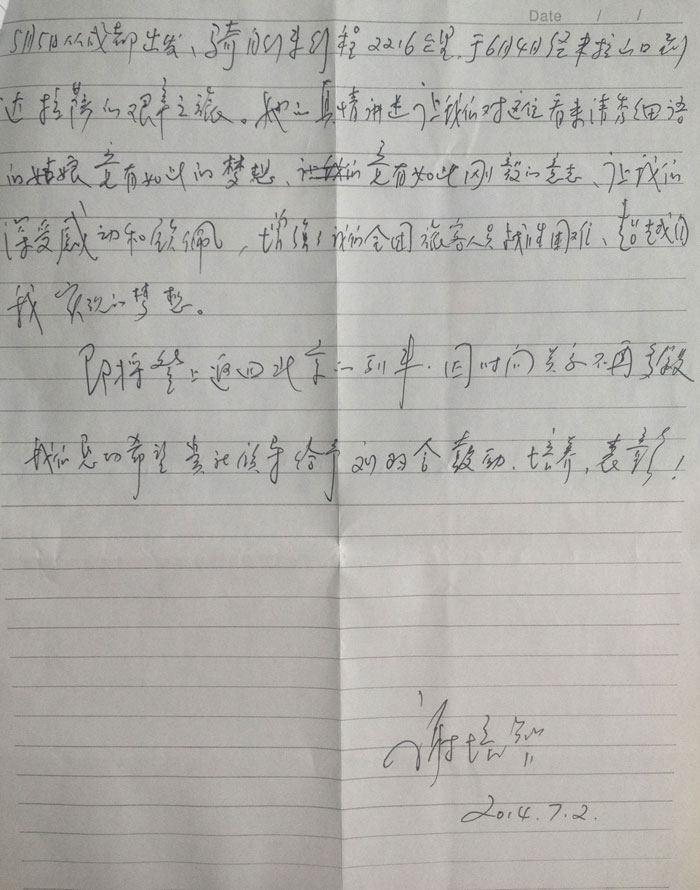 Date / /
5月5日从成都出发、骑自行车行程2216公里.于6月4日经米拉山口到
达拉萨的艰辛之旅。她的真情讲述让我们对这位看来清秀细语
的姑娘竟有如此的梦想、竟有如此刚毅的意志、让我们
深受感动和钦佩，增强了我们全团旅客人员战胜困难、超越自
我实现的梦想。
即将登上返回北京的列车.因时间关系不再多叙
我们恳切希望贵社领导给予刘 鼓励、培养、表彰！
谢培
2014.7.2.